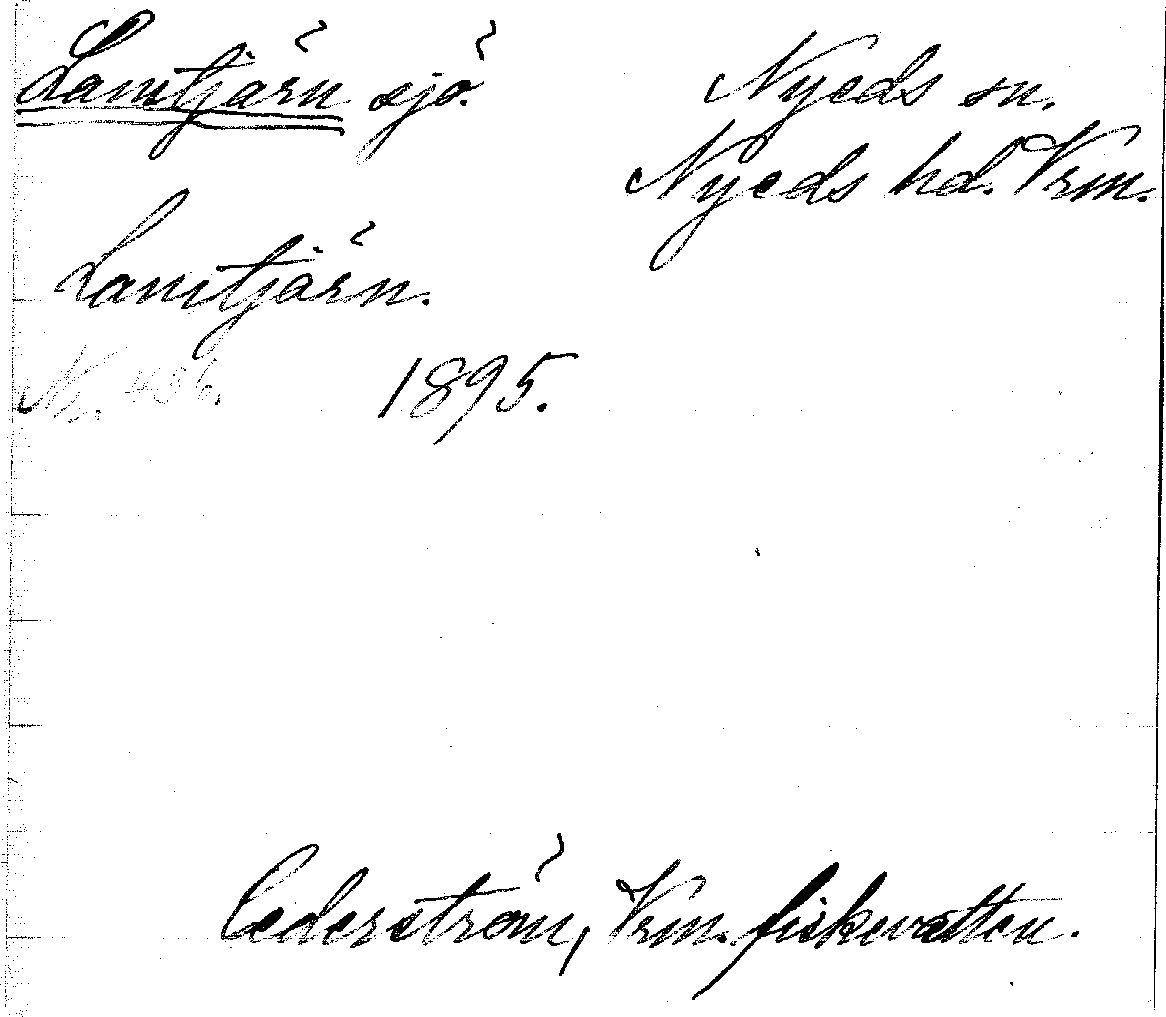 Lamtjärn sjö.
Nyeds sn.
Nyeds hd. Vrm.
Lamtjärn.
Nr. 456.
1895.
Cederström, Vrm. fiskevatten.